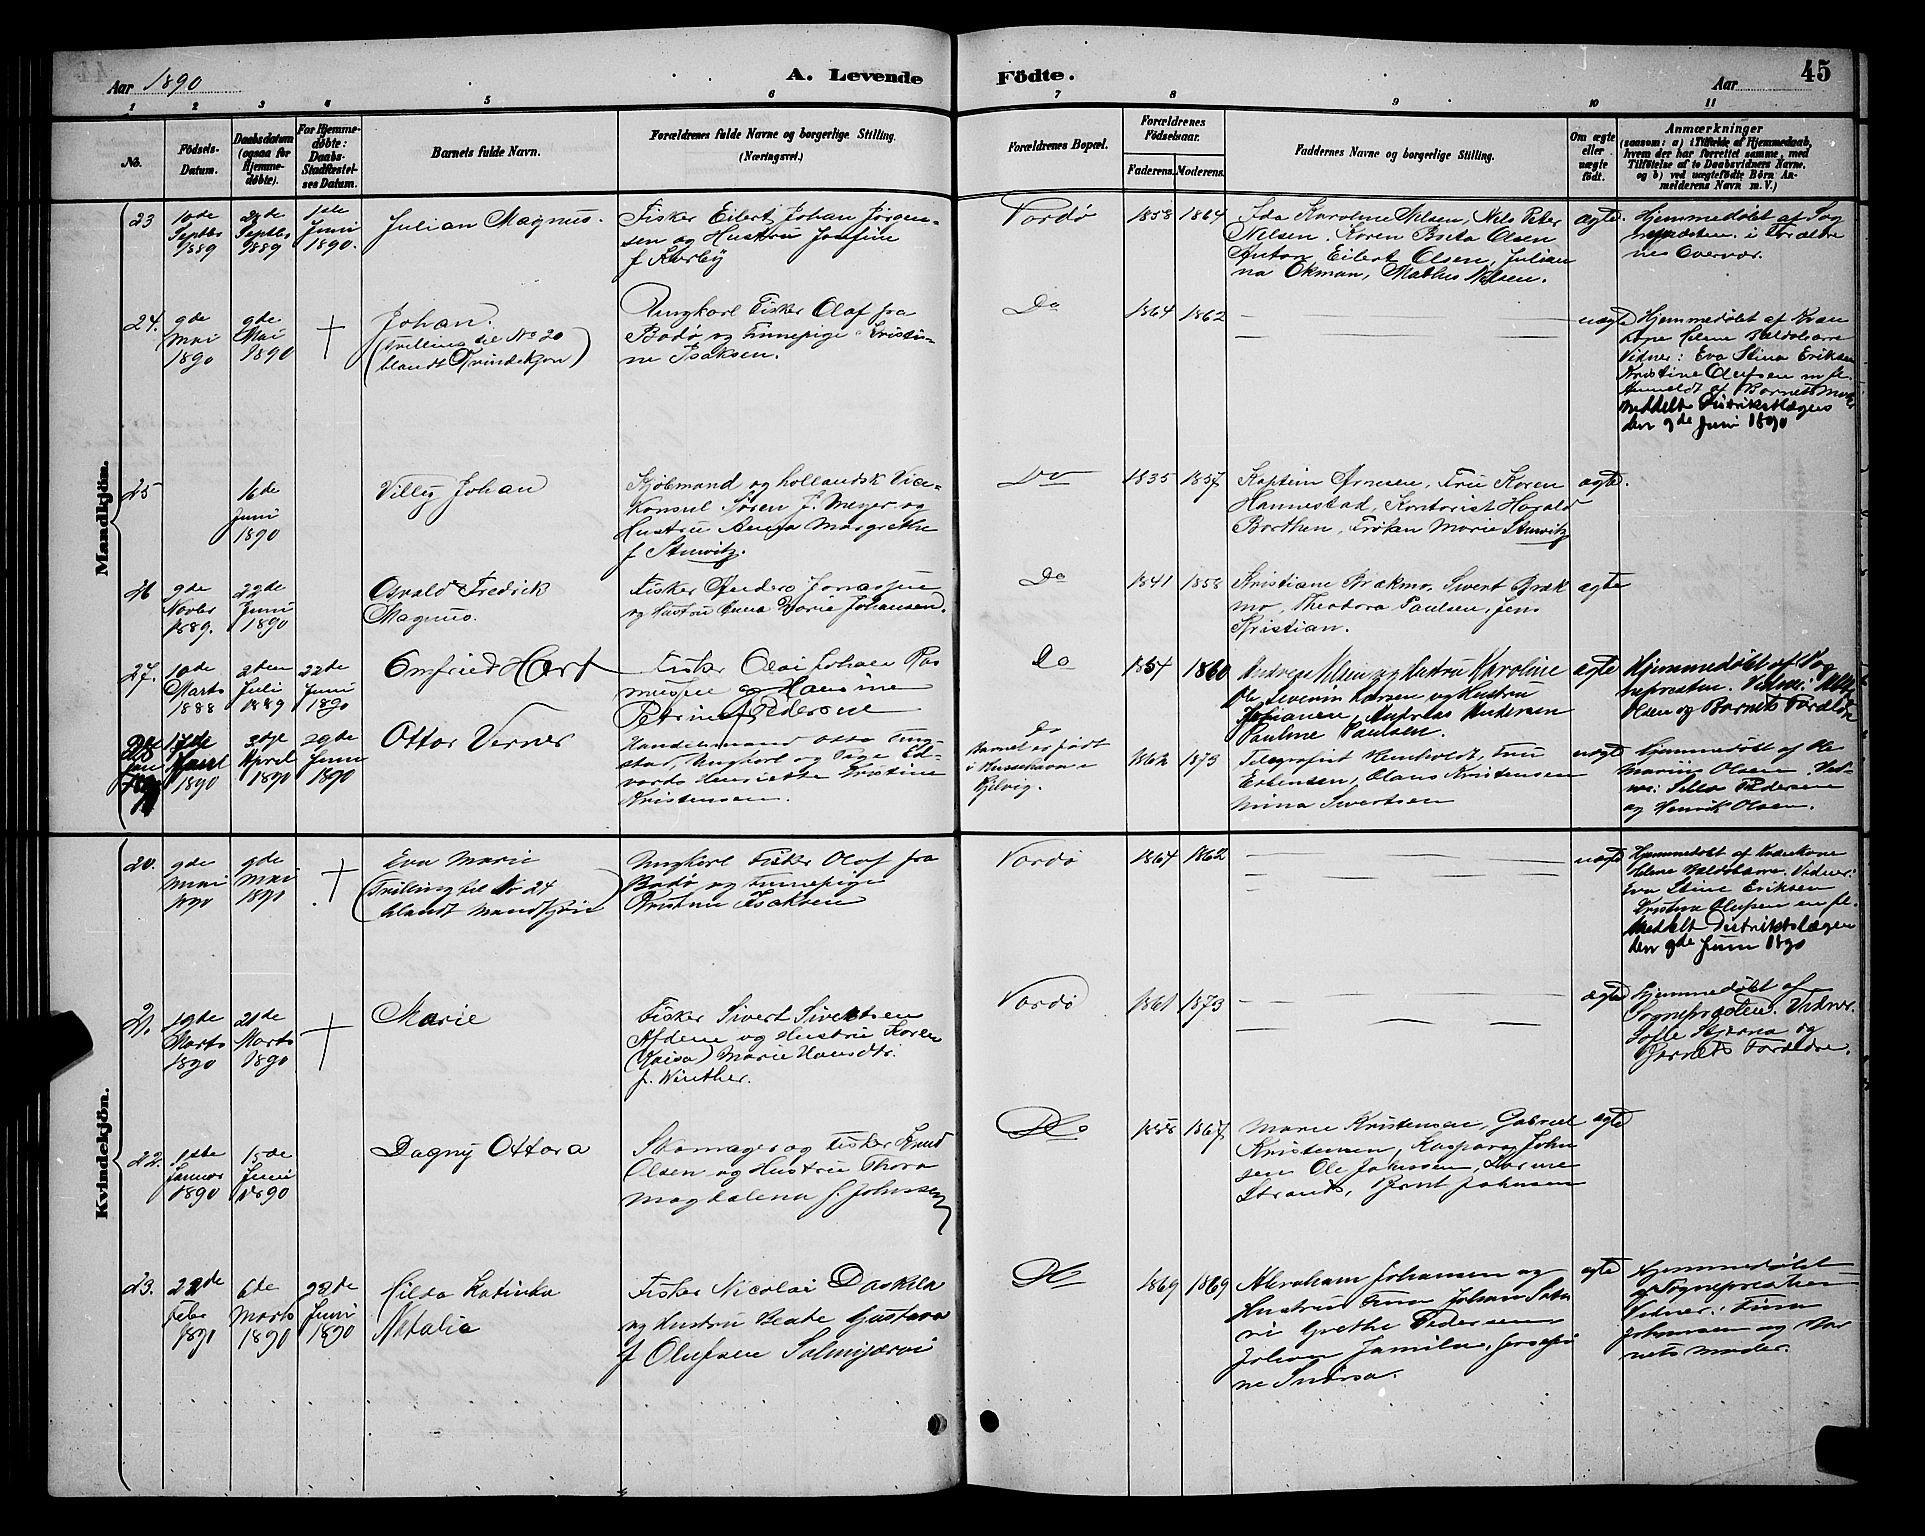 Aar 1890
A. Levende
Födte.
Aar
45
1 2 3 4 5 6 7 8 9 10 11
No.
Födsels-
Datum.
Daabsdatum
(ogsaa for
Hjemme-
döbte).
For Hjemme-
döbte:
Daabs-
Stadfæstel-
ses Datum.
Barnets fulde Navn.
Forældrenes fulde Navne og borgerlige Stilling.
(Næringsvei.)
Forældrenes Bopæl.
Forældrenes
Födselsaar.
Faderens. Moderens.
Faddernes Navne og borgerlige Stilling.
Om ægte
eller
uægte
født.
Anmærkninger
(saasom: a) i Tilfælde af Hjemmedaab,
hvem der har forrettet samme, med
Tilföielse af to Daabsvidners Navne.
og b) ved uægtefödte Börn An-
melderens Navn m. V.)
Mandkjön.
23
10de
Septbr
1889
29de
Septbr
1889
1ste
Juni
1890.
Julian Magnus.
Fisker Eilert Johan Jørgen-
sen og Hustru Josefine
f Kurby
Vardø
1858 1864
Ida Karoline Nilsen, Nils Peter
Nilsen. Karen Berta Olsen
Anton Eilert Olsen, Julian
na Økman, Mathis Nilsen.
ægte.
Hjemmedøbt af Sog
nepræsten i Forældre
nes Overvær.
24.
9de
Mai
1890
9de
Mai
1890
†
Johan.
(Tvilling til No 20
blandt Kvindekjøn)
Ungkarl Fisker Olaf fra
Bodø og Finnepige Kristi-
ne Isaksen.
Do
1864 1862
uægte
Hjemmedøbt af Kvæn
kone Helene
Vidner: Eva Stina Eriksen
Kristine Olufsen m fl.
Anmeldt af Barnets Moder
Meddelt Distriktslægen
den 9de Juni 1890
25
16de
Juni
1890
Villy Johan
Kjøbmand og hollandsk Vice-
Konsul Søren J. Meyer og
Hustru Anna Margrethe
f Stuwitz.
Do
1835 1857
Kaptein Arnesen, Fru Karen
Hannestad, Kontorist Harald
Borthen, Frøken Marie Stuwitz
ægte.
26
9de
Novbr
1889.
29de
Juni
1890
Osvald Fredrik
Magnus.
Fisker Anders Jonassen
og Hustru Anna Marie Johansen.
Do
1841 1858
Kristiane Brækmo, Sivert Bræk
mo, Theodora Paulsen, Jens
Kristian.
ægte
27.
10de
Marts
1888
2den
Juli
1889
22de
Juni
1890
Omfried Hart
Fisker Olai Johan Ras
mussen og Hansine
Petrine f Pedersen
Do
1854 1860
Andreas Nilsen og Hustru Karoline
Ole Severin Larsen og Hustru
Johanna, Andreas Andersen
Pauline Paulsen.
ægte
Hjemmedøbt af Sog
nepresten. Vidner.
Olsen og Barnets Forældre
28
17de
1890
3dje
April
1890
29de
Juni
1890
Ottar Verner
Handelsmand Otto
Ungkarl og Pige Ed-
varda Henriette Kristine
Kristensen.
Do
Barnet er født
i
Kjelvig.
1862 1873
Telegrafist Hemholdt, Fru
Olaus Kristensen
Mina Sivertsen
uægte
Hjemmedøbt af Ole
Mariius Olsen. Vid-
ner: Pedersen
og Henrik Olsen.
Kvindekjön.
20.
9de
Mai
1890
9de
Mai
1890
†
Eva Marie
(Tvilling til No 24
blandt Mandkjøn)
Ungkarl Fisker Olaf fra
Bodø og Finnepige
Kristine Isaksen
Vardø
1864 1862
uægte
Hjemmedøbt af Kvænkone
Helene Vidner:
Eva Stine Eriksen
Kristine Olufsen m fl.
Meddelt Distriktslægen
den 9de Juni 1890
21.
19de
Marts
1890
21de
Marts
1890
†
Marie
Fisker Sivert Sivertsen
og Hustru Karen
(Kaisa) Marie
f. Winther.
Vardø
1861 1873
ægte
Hjemmedøbt af
Sognepræsten. Vidner.
Sofie Stjerna og
Barnets Forældre.
22.
1ste
Januar
1890
15de
Juni
1890
Dagny Ottora
Skomager og Fisker Knud
Olsen og Hustru Thora
Magdalena f. Johnsen
Do
1858 1867
Marie Kristensen, Gabriel
Kristensen, Kaspara John
sen Ole Johnsen,
Strand, Bernt Johnsen
ægte
23.
22de
Febr
1890
6de
Marts
1890
22de
Juni
1890
Hilda Katinka
Natalie
Fisker Nicolai Daskila
og Hustru Beate Gustava
f Olufsen Salmijærvi
Do
1869 1869
Abraham Johansen og
Hustru Fina Johan
Grethe Pedersen
Johan Josefi
ne
ægte
Hjemmedøbt
af Sognepresten
Vidner: Fina
Johansen og Bar
nets Moder.